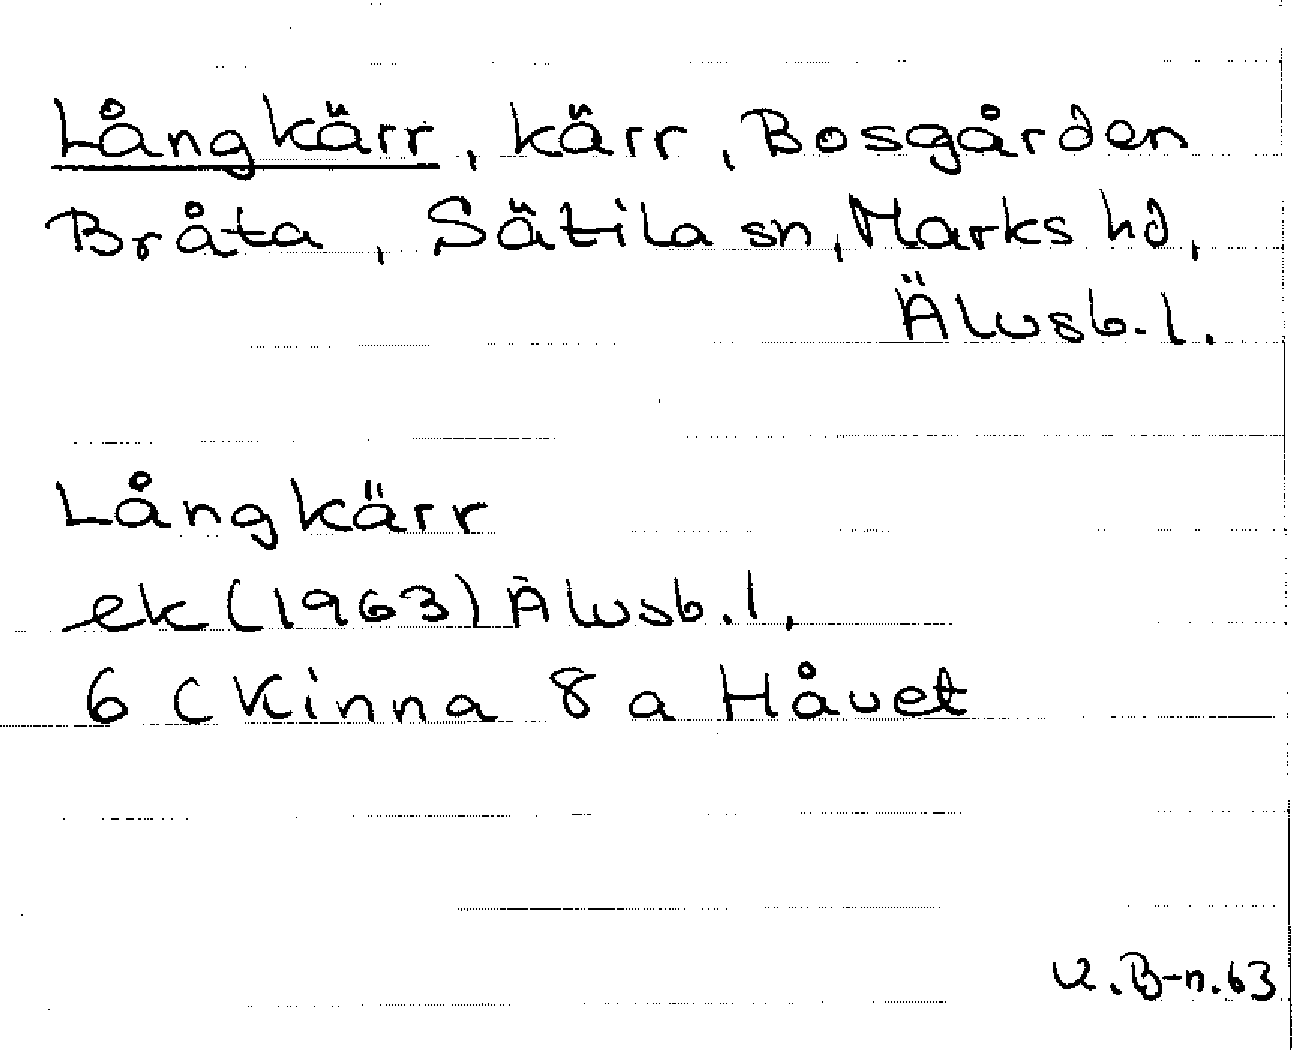 Långkärr, kärr, Bosgården
Bråta, Sätila sn, Marks hd,
Älvsb. l.
Långkärr
ek (1963) Älvsb. l,
6 C Kinna 8 a Håvet
V. B-n. 63